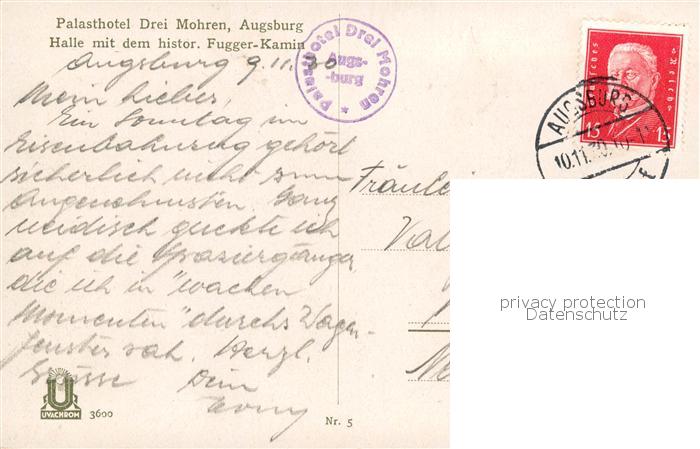 Palasthotel Drei Mohren, Augsburg
Halle mit dem histor. Fugger-Kamin
Augsburg 9.11.30
Mein Lieber,
Ein Sonntag im
Eisenbahnzug gehört
sicherlich nicht zum
Angenehmsten. Ganz
neidisch guckte ich
auf die Spaziergänger
die ich in "wachen
Momenten" durchs Wagen-
fenster sah. Herzl.
Grüsse Dein
UVACHROM
3600
Nr. 5
Palasthotel Drei Mohren
Augs-
-burg
Deutsches Reich
15 15
AUGSBURG
10.11.30.10-11
Fräulei
Val
privacy protection
Datenschutz